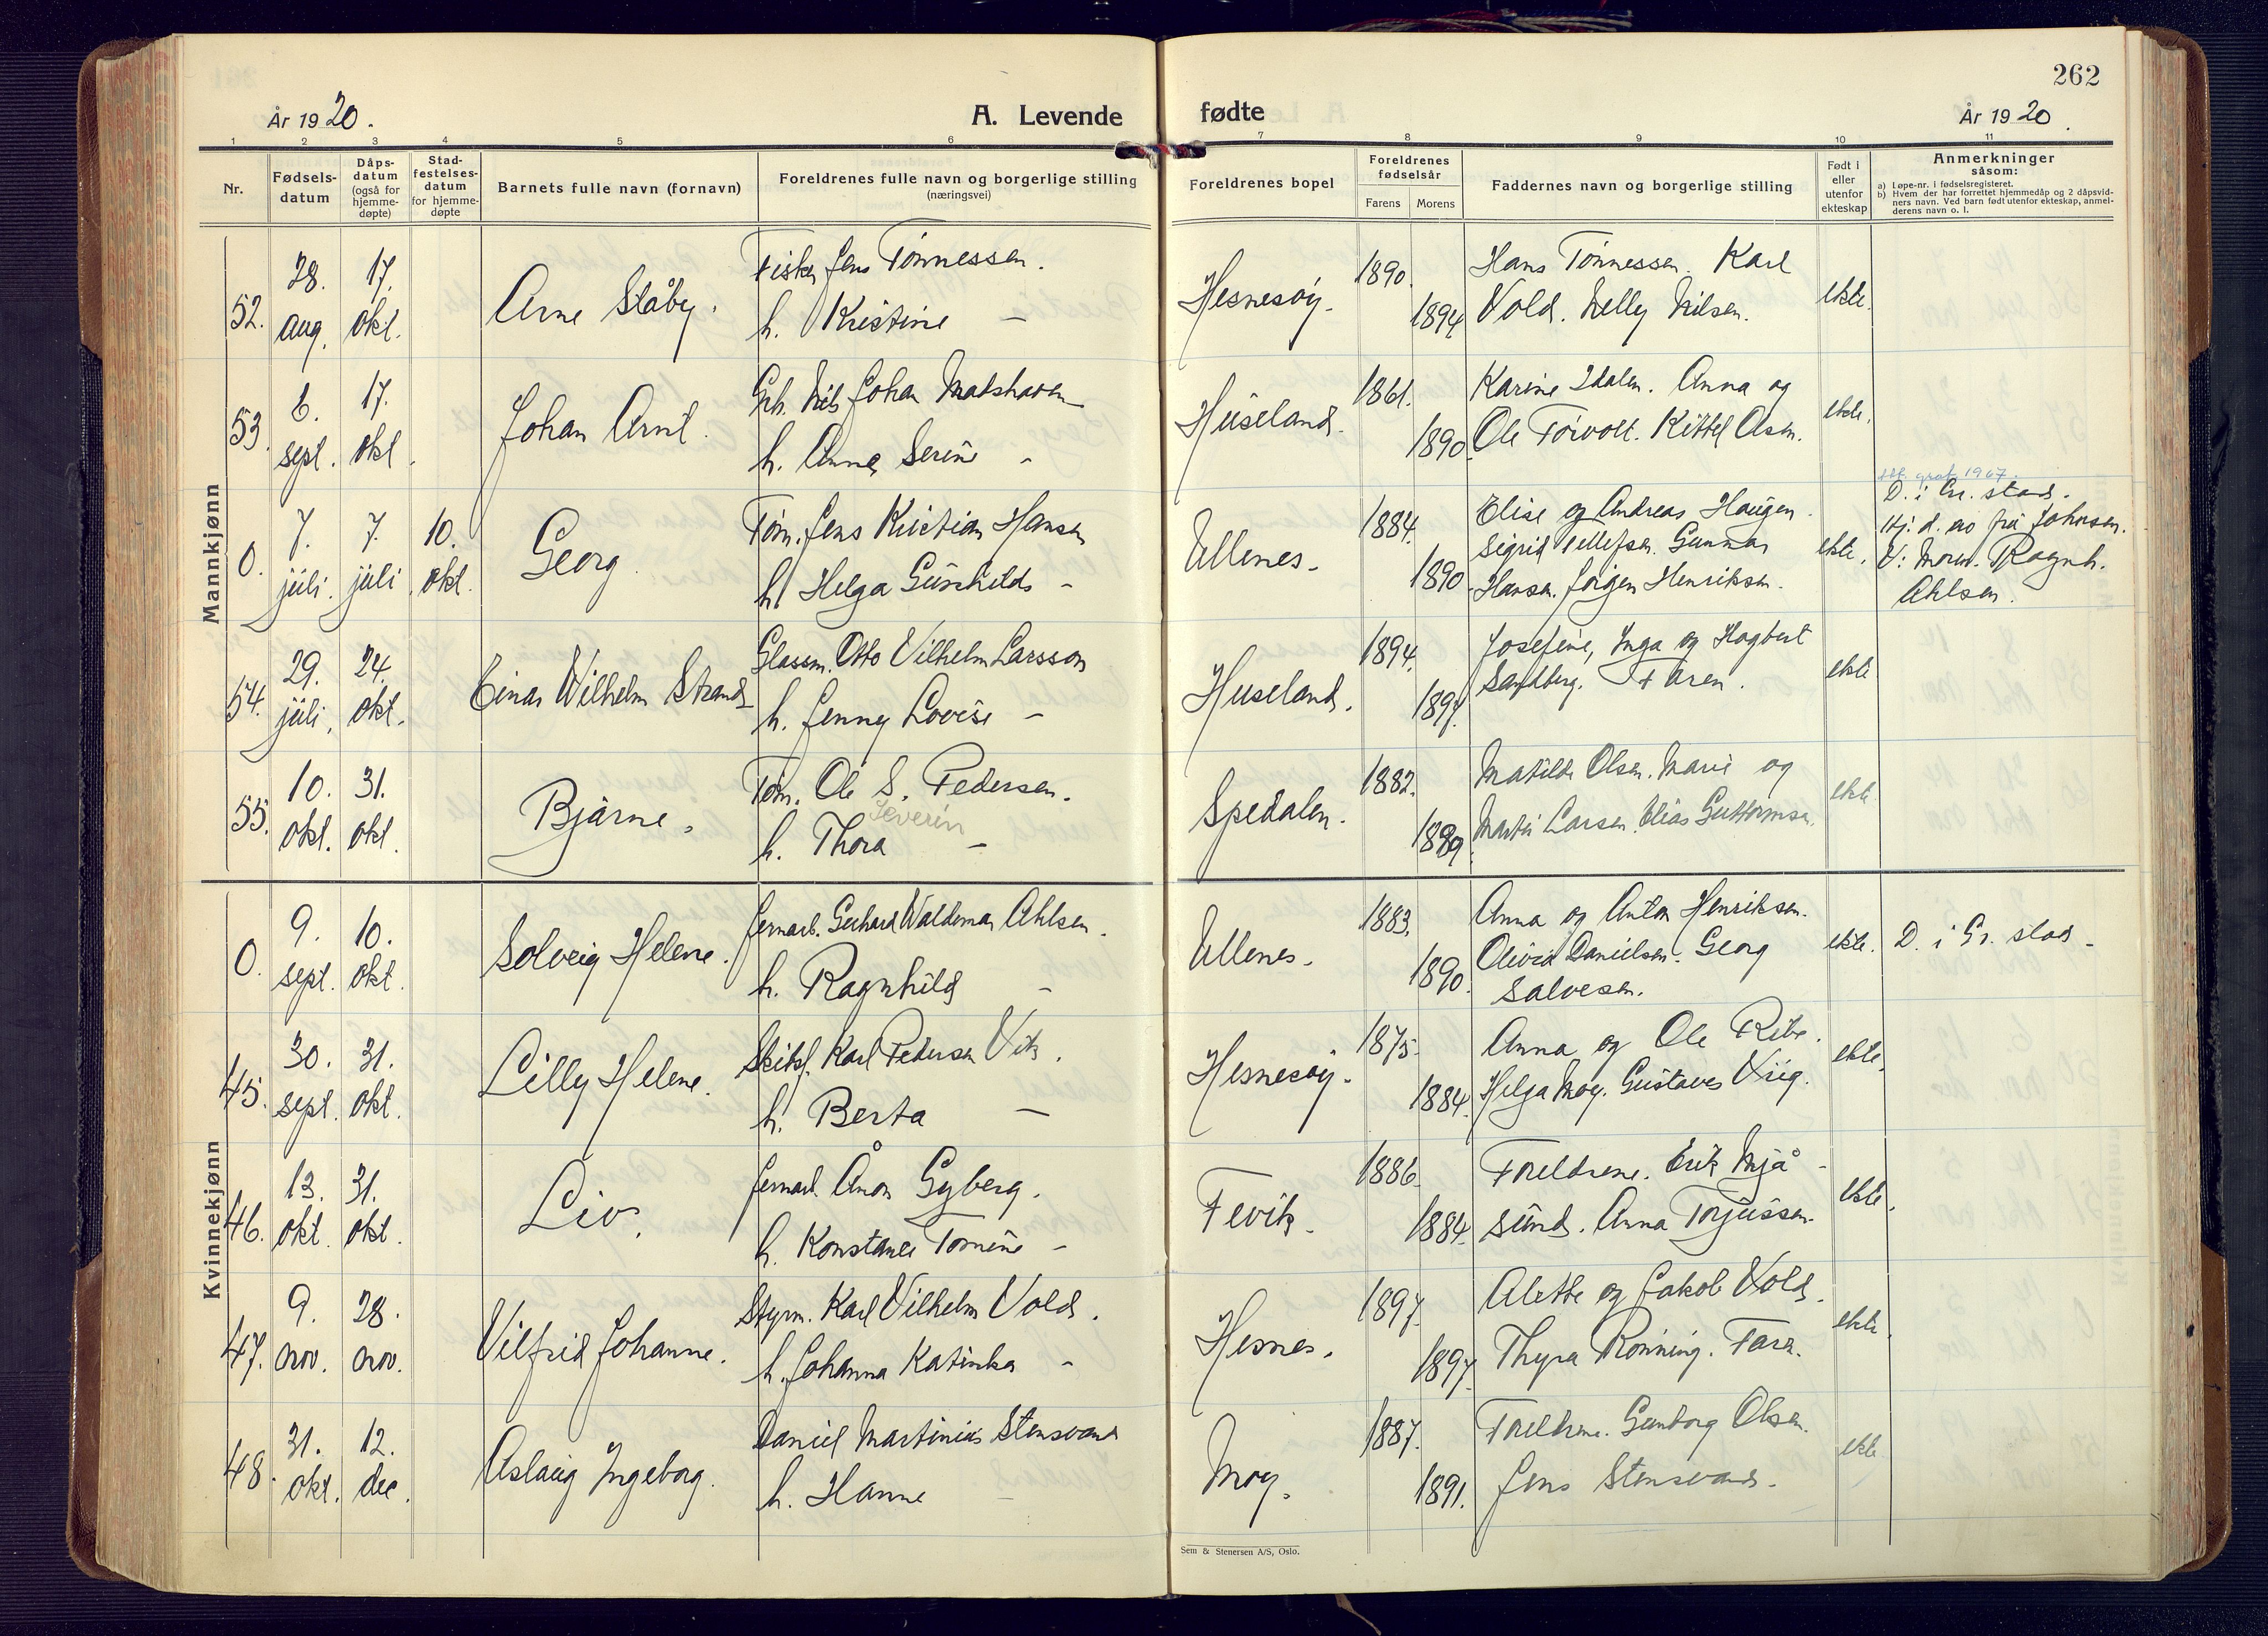 262
År 1920.
A. Levende fødte
År 1920.
1 2 3 4 5 6 7 8 9 10 11
Nr.
Fødsels-
datum
Dåps-
datum
(også for
hjemme-
døpte)
Stad-
festelses-
datum
for hjemme-
døpte
Barnets fulle navn (fornavn)
Foreldrenes fulle navn og borgerlige stilling
(næringsvei)
Foreldrenes bopel
Foreldrenes
fødselsår
Farens Morens
Faddernes navn og borgerlige stilling
Født i
eller
utenfor
ekteskap
Anmerkninger
såsom:
a) Løpe-nr. i fødselsregisteret.
b) Hvem der har forrettet hjemmedåp og 2 dåpsvid-
ners navn. Ved barn født utenfor ekteskap, anmel-
derens navn o. l.
Mannkjønn
52. 28. aug. 17. okt. Arne Ståby.
Fisker Jens Tönnessen.
h. Kristine –
Hesnesöy. 1890. 1894
Hans Tönnessen. Karl
Vold. Nelly Nilsen.
ekte.
53. 6. sept. 17. okt. Johan Arnt.
Nils Johan Madshaven
h. Anna Serine –
Huseland. 1861. 1890.
Karine Idalen. Anna og
Ole Torvolt. Kittel Olsen.
ekte.
0. 7. juli. 7. juli. 10. okt. Georg.
Töm. Jens Kristian Hansen
h. Helga Gunhilds –
Ullenes. 1884. 1890
Elise og Andreas Haugen.
Sigrid Tellefsen. Gunnar
Hansen. Jörgen Henriksen.
ekte.
1967.
D. i Gr. stad.
Hj. d. av fru Johnsen.
V: Moren. Ragnh.
Ahlsen.
54. 29. juli. 24. okt. Einar Wilhelm Strand
Glassm. Otto Vilhelm Larsson
h. Jenny Lovise –
Huseland. 1894. 1897.
Josefine, Inga og Hagbert
Sandberg. Faren.
ekte
55. 10. okt. 31. okt. Bjarne.
Töm. Ole S. Pedersen.
Severin
h. Thora –
Spedalen. 1882. 1889.
Matilde Olsen. Marie og
Martin Larsen. Elias Guttormsen.
ekte.
Kvinnekjønn
0. 9. sept. 10. okt. Solveig Helene.
Jernarb. Gerhard Waldemar Ahlsen.
h. Ragnhild –
Ullenes. 1883. 1890.
Anna og Anton Henriksen.
Olivia Danielsen. Georg
Salvesen.
ekte. D. i Gr. stad –
45. 30. sept. 31. okt. Lilly Helene.
Karl Pedersen Vik.
h. Berta –
Hesnesöy. 1875. 1884.
Anna og Ole Ribe.
Helga Moy. Gustava Viig.
ekte.
46. 13. okt. 31. okt. Liv.
Jernarb. Ånon Gyberg.
h. Konstance Tomine –
Fevik. 1886. 1884.
Foreldrene. Erik Mjå-
sund. Anna Torjussen.
ekte.
47. 9. nov. 28. nov. Vilfrid Johanne.
Styrm. Karl Vilhelm Vold.
h. Johanna Katinka –
Hesnes. 1897. 1897.
Alette og Jakob Vold.
Thyra Rönning. Faren.
ekte.
48. 31. okt. 12. dec. Aslaug Ingeborg.
Daniel Martinius Stensvand
h. Hanne –
Moy. 1887. 1891.
Foreldrene. Gunborg Olsen.
Jens Stensvand.
ekte
Sem & Stenersen A/S, Oslo.